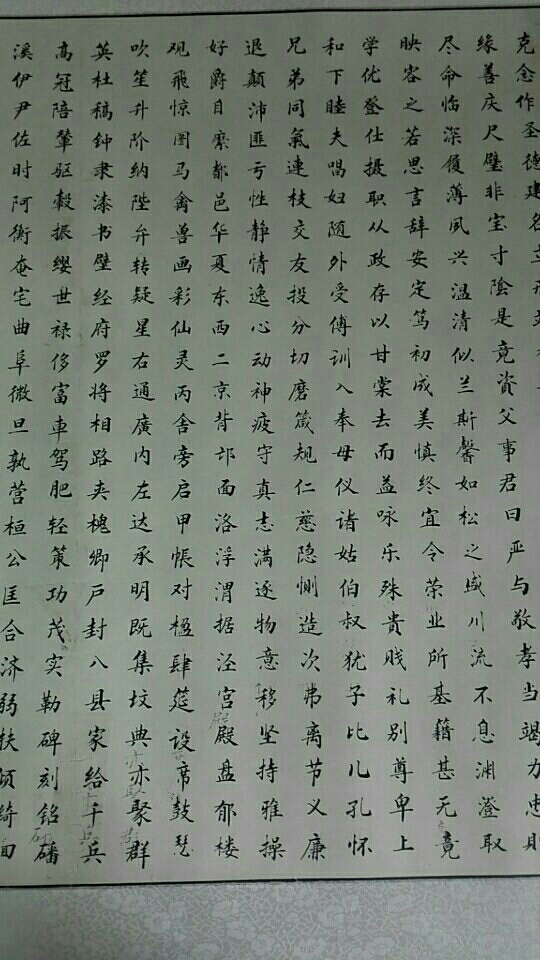 克念作圣德建名立形端表
缘善庆尺璧非宝寸陰是竟資父事君曰严与敬孝当竭力忠则
尽命临深履薄夙兴温清似兰斯馨如松之盛川流不息渊澄取
映容之若思言辞安定笃初成美慎终宜令荣业所基籍甚无竟
学优登仕摄职从政存以甘棠去而益咏乐殊贵贱礼别尊卑上
和下睦夫唱妇随外受傅训入奉母仪诸姑伯叔犹子比儿孔怀
兄弟同氣連枝交友投分切磨箴规仁慈隐恻造次弗离节义廉
退颠沛匪亏性静情逸心动神疲守真志满逐物意移坚持雅操
好爵自縻都邑华夏东西二京背邙面洛浮渭据泾宫殿盘郁楼
观飛惊图马禽兽画彩仙灵丙舍旁启甲帳对楹肆筵设席鼓瑟
吹笙升阶納陛弁转疑星右通廣内左达承明既集坟典亦聚群
英杜稿钟隶漆书壁经府罗将相路夹槐卿户封八县家给千兵
高冠陪輦驱轂振缨世禄侈富車驾肥轻策功茂实勒碑刻铭磻
溪伊尹佐时阿衡奄宅曲阜微旦孰营桓公匡合济弱扶倾绮回